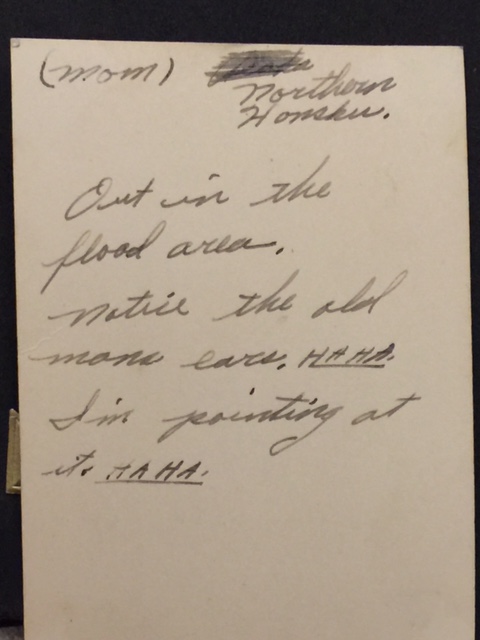 (mom)
Northern
Honshu.
Out in the
flood area.
Notice the old
mans ears. HAHA.
I'm pointing at
it. HAHA.